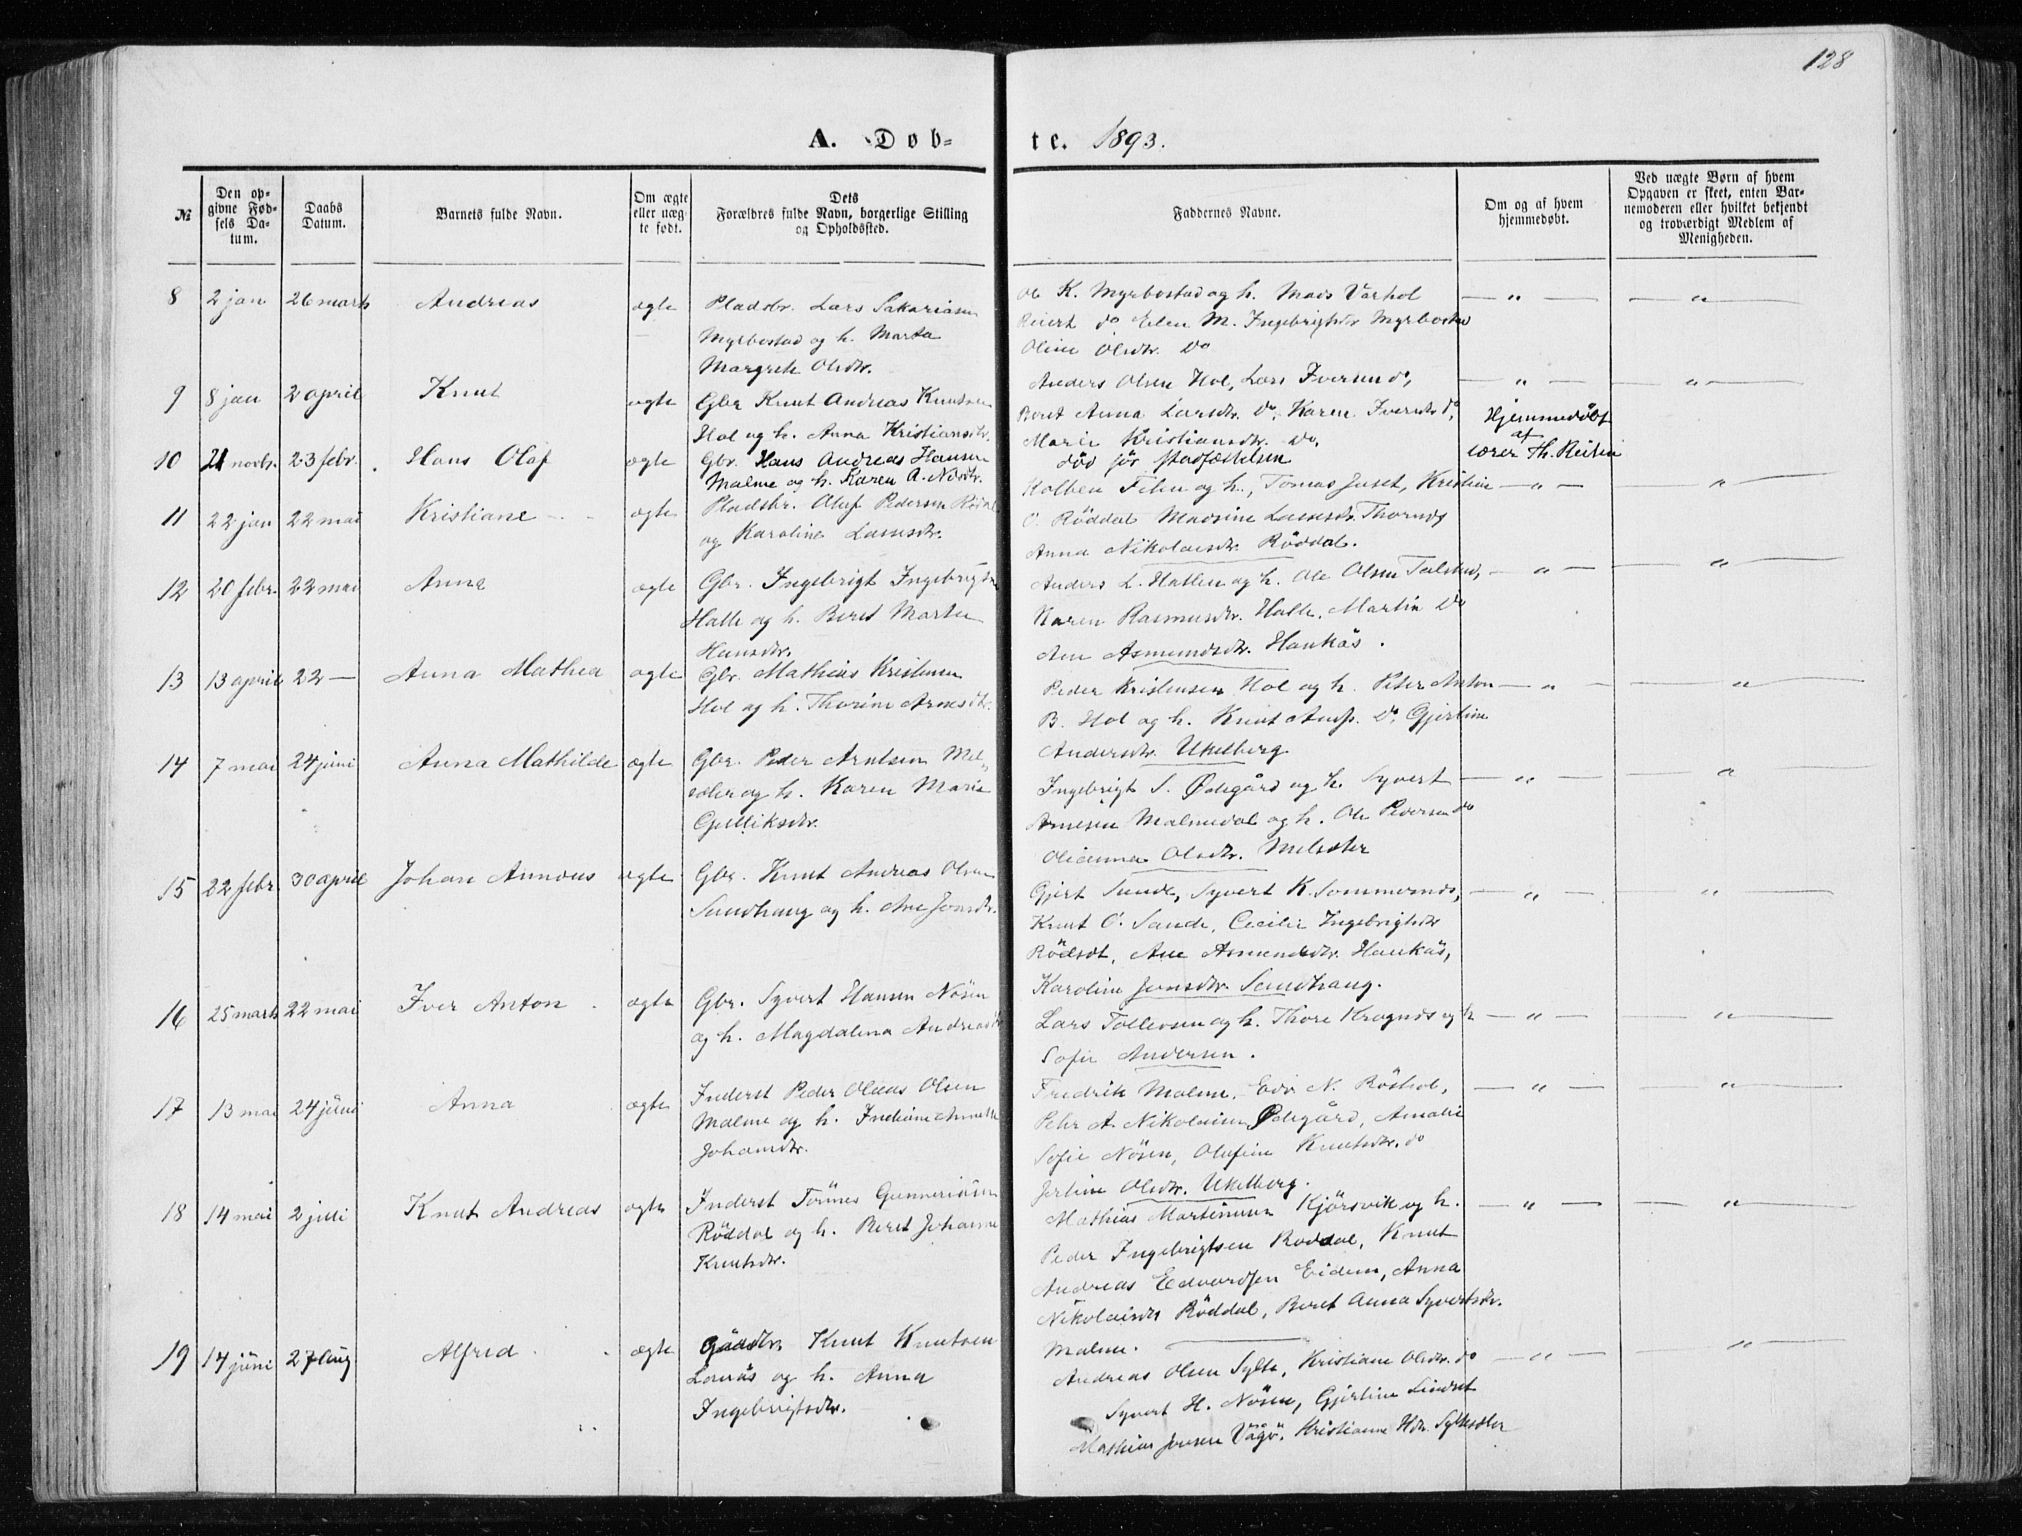 128
A. Døb-
te. 1893.
№
Den op-
givne Fød-
sels Da-
tum.
Daabs
Datum.
Barnets fulde Navn.
Om ægte
eller uæg-
te født.
Dets
Forældres fulde Navn, borgerlige Stilling
og Opholdssted.
Faddernes Navne.
Om og af hvem
hjemmedøbt.
Ved uægte Børn af hvem
Opgaven er skeet, enten Bar-
nemoderen eller hvilket bekjendt
og troværdigt Medlem af
Menigheden.
8 2 jan 26 marts Andreas ægte
Pladsbr. Lars Sakariasen
Myrbostad og h. Marta
Margrete Olsdtr.
Ole K. Myrbostad og h. Mads Varhol — " — — " —
do Elen M. Ingebrigtsdtr Myrbostad
Oline Olsdtr. Do
9 8 jan 2 april Knut ægte
Gbr Knut Andreas Knutsen
Hol og h. Anna Kristiansdtr.
Anders Olsen Hol, Lars Iversen do, — " — — " —
Beret Anna Larsdtr. Do, Karen Iversdtr do,
Marie Kristiansdtr. Do,
10 21 novbr. 23 febr. Hans Olaf ægte
Gbr. Hans Andreas Hansen
Malme og h. Karen A. Nilsdtr.
død før stadfæstelsen
Hjemmedøbt
af
lærer Th. Reiten
11 22 jan 22 mai Kristiane ægte
Pladsbr. Oluf Pedersen Röddal
og Karoline Larsdtr.
Kolben Filen og h., Tomas Juset, Kristine — " — — " —
O. Röddal Madsine Larsdtr. Thornes
Anna Nikolaisdtr. Röddal.
12 20 febr. 22 mai Anna ægte
Gbr. Ingebrigt Ingebrigtsen
Halle og h. Beret Marta
Hansdtr.
Anders L. Hatlen og h. Ole Olsen Talstad, — " — — " —
Karen Rasmusdtr. Halle, Martin Do
Ane Asmundsdtr. Haukås.
13 13 april 22 — Anna Mathea ægte
Gbr. Mathias Kristensen
Hol og h. Thorine Arnesdtr.
Peder Kristensen Hol og h. Peter Anton — " — — " —
B. Hol og h. Knut Do, Gjertine
Andersdtr. Ukelberg
14 7 mai 24 juni Anna Mathilde ægte
Gbr. Peder Arntsen Mel-
sæter og h. Karen Marie
Gulliksdtr.
Ingebrigt S. Ødegård og h. Syvert — " — — " —
Arnesen Malmedal og h. Ole Pedersen do
Olianna Olsdtr. Melsæter
15 22 febr 30 april Johan Annæus ægte
Gbr. Knut Andreas Olsen
Sandhaug og h. Ane Jonsdtr.
Gjert Sunde, Syvert K. Sommernes, — " — — " —
Knut O. Sande, Cecilie Ingebrigtsdtr
Rödsæt, Ane Asmundsdtr. Haukås,
Karoline Jonsdtr. Sandhaug.
16 25 marts 22 mai Iver Anton ægte
Gbr. Syvert Hansen Nösen
og h. Magdalena Andreasdtr
Lars Tollevsen og h. Thore Krognes og h — " — — " —
Sofie Andersen.
17 13 mai 24 juni Anna ægte
Inderst Peder Olaus Olsen
Malme og h. Indiane Annette
Johansdtr.
Fredrik Malme, Edv. N. Röshol, — " — — " —
Pehr A. Nikolaisen Ødegård, Amalie
Sofie Nösen, Olufine Knutsdtr. do
Jertine Olsdtr. Ukelberg.
18 14 mai 2 juli Knut Andreas ægte
Inderst Tormes Gunneriusen
Röddal og h. Beret Johanna
Knutsdtr.
Mathias Martinusen Kjörsvik og h. — " — — " —
Peder Ingebrigtsen Roddal, Knut
Andreas Edvardsen Eidem, Anna
Nikolaisdtr Röddal, Beret Anna Syvertsdtr.
Malme.
19 14 juni 27 Aug Alfred ægte
Gårdbr. Knut Knutsen
Lanäs og h. Anna
Ingebrigtsdtr.
Andreas Olsen Sylte, Kristiane Olsdtr. do — " — — " —
Syvert H. Nösen, Gjertine Lindset
Mathias Jensen Vågö, Kristianne Hdtr. Syltesæter